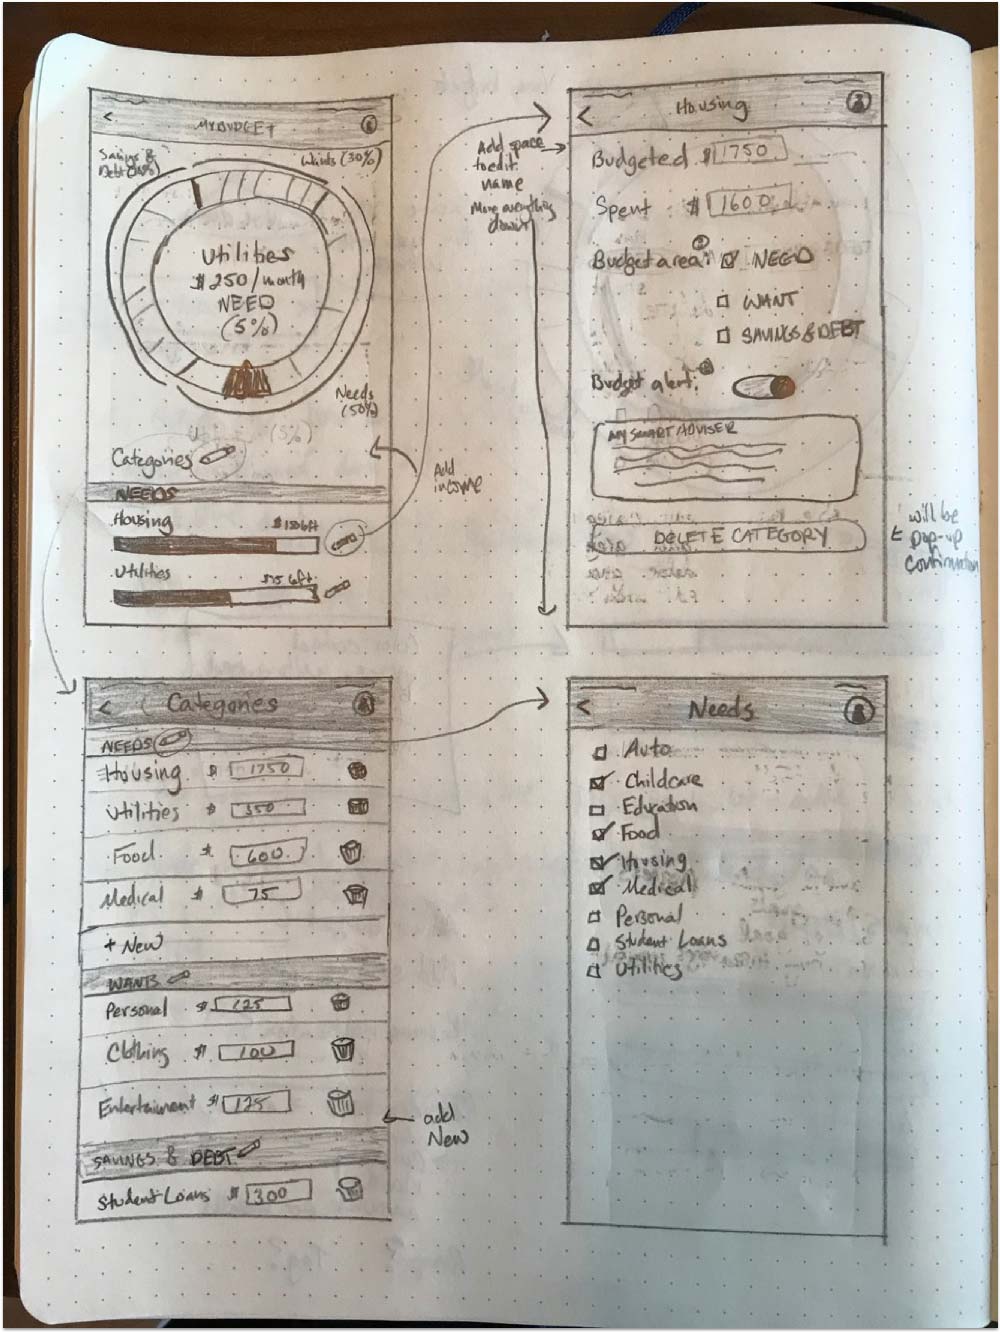 MY BUDGET
Savings &
Debt (20%)
Wants (30%)
Utilities
$250/month
NEED
(5%)
Needs
(50%)
(5%)
Categories
Add
income
NEEDS
Housing
Utilities
Add space
to edit
name
Move everything
down
Housing
Budgeted $ 1750
Spent $ 1600
Budget area: NEED
WANT
SAVINGS & DEBT
Budget alert:
MY SMART ADVISER
DELETE CATEGORY
will be
pop-up
confirmation
Categories
NEEDS
Housing $ 1750
Utilities $ 350
Food $ 600
Medical $ 75
+ New
WANTS
Personal $ 125
Clothing $ 100
Entertainment $ 125
add
New
SAVINGS & DEBT
Student Loans $ 300
Needs
Auto
Childcare
Education
Food
Housing
Medical
Personal
Student Loans
Utilities